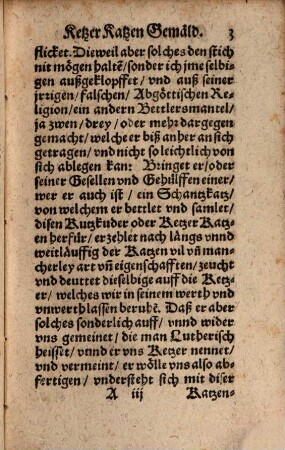 Ketzer Katzen Gemäld. 3
flicket. Dieweil aber solches den stich
nit mögen haltē/sonder ich jme selbi-
gen außgeklopffet/ vnd auß seiner
jrrigen/falschen/ Abgöttischen Re-
ligion/ein andern Bettlersmantel/
ja zwen/drey/oder mehr dargegen
gemacht/welche er biß anher an sich
getragen/vnd nicht so leichtlich von
sich ablegen kan: Bringet er/oder
seiner Gesellen vnd Gehülffen einer/
wer er auch ist/ ein Schantzkatz/
von welchem er bettlet vnd samlet/
disen Kutzkuder oder Ketzer Katz-
en herfür/er zehlet nach längs vnnd
weitläuffig der Katzen vil vn̄ man-
cherley art vn̄ eigenschafften/ zeucht
vnd deuttet dieselbige auff die Ketz-
er/ welches wir in seinem werth vnd
vnwerth lassen beruhē. Daß er aber
solches sonderlich auff/ vnnd wider
vns gemeinet/ die man Lutherisch
heisset/ vnnd er vns Ketzer nennet/
vnd vermeint/ er wölle vns also ab-
fertigen/ vndersteht sich mit diser
A iij Katzen-